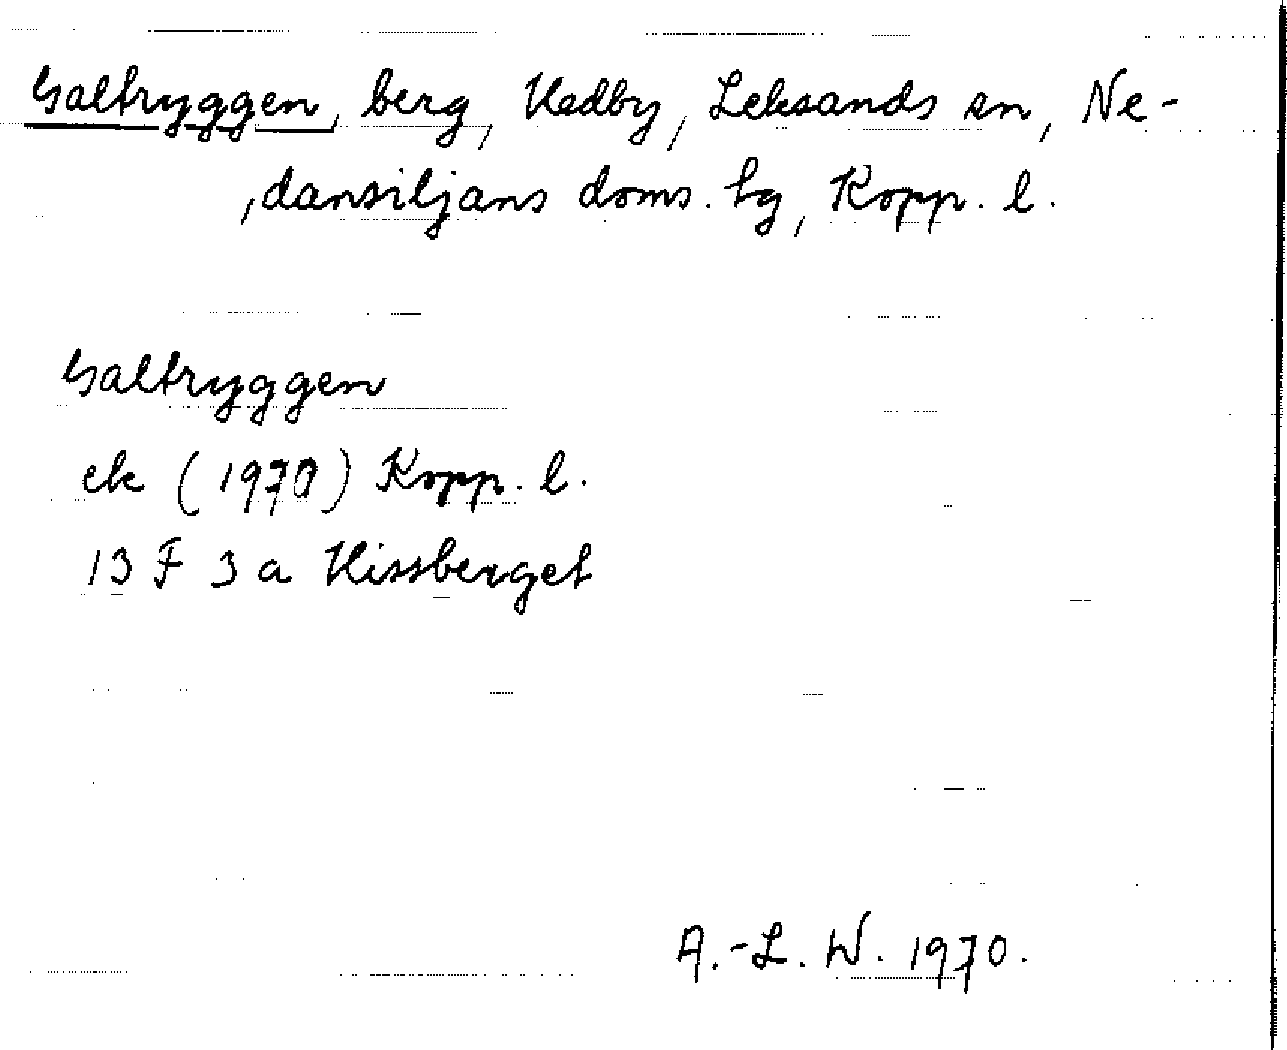 Galtryggen, berg, Hedby, Leksands sn, Ne-
dansiljans doms. hg, Kopp. l.
Galtryggen
ek (1970) Kopp. l.
13 F 3 a Hissberget
A.-L. W. 1970.